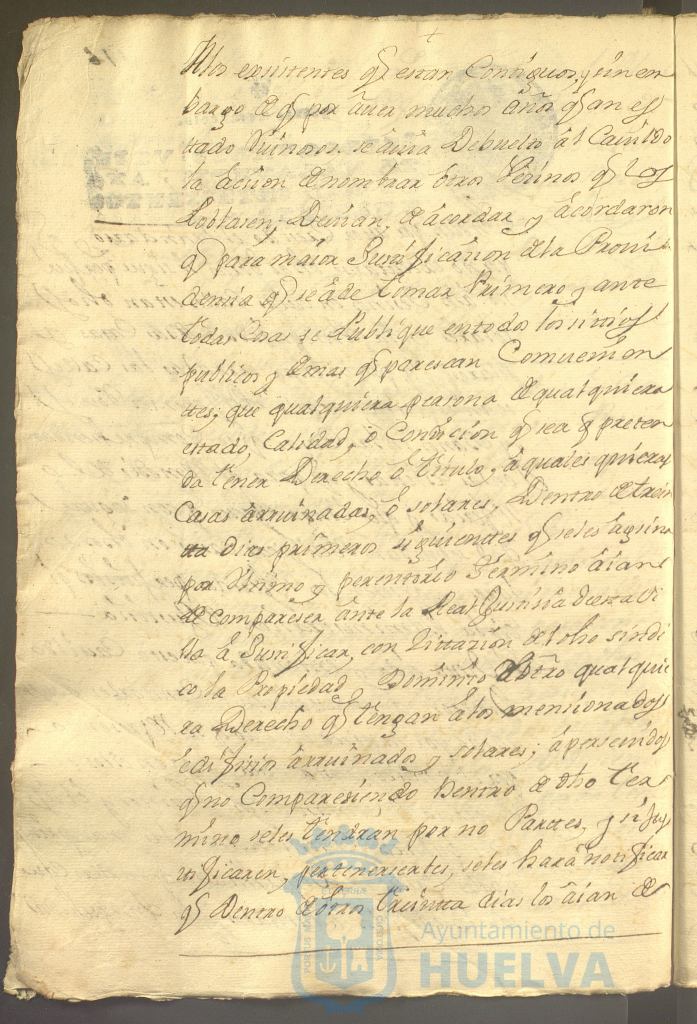 A los existentes q.e estan Contiguos, y sin em
bargo de q.e por aver muchos años q.e an es
tado Ruinosos se avia Debuelto al Cavildo
la accion de nombrar otros Vesinos q.e los
Lobrasen, Devian, de acordar y acordaron
q.e para maior Justificazion de la Provi
densia q.e se a de tomar Primero y ante
todas Cosas se Publique en todos los sitios
publicos, y demas q.e paresean Comvenien
tes; que qualquiera persona de qualquiera
estado, Calidad, o Condicion q.e sea q.e preten
da tener Derecho o titulo, a quales quiera
Casas arruinadas, o solares, Dentro de trein
ta dias primeros siguientes q.e se les asigna
por Vltimo y perentorio termino aian
de compareser ante la Real Justisia de esta Vi
lla a Justificar, con Zittazion del dho sindi
co la Propiedad, Dominio u otro qualquie
ra Derecho q.e tengan a los mencionados
edifisios arruinados y solares; apersevidos
q.e no Compareciendo Dentro de dho ter
mino se les tendran por no Partes, y si jus
tificaren, pertenerseles, se les hará notificar
q.e Dentro de otros treinta dias los aian de
Ayuntamiento de
HUELVA